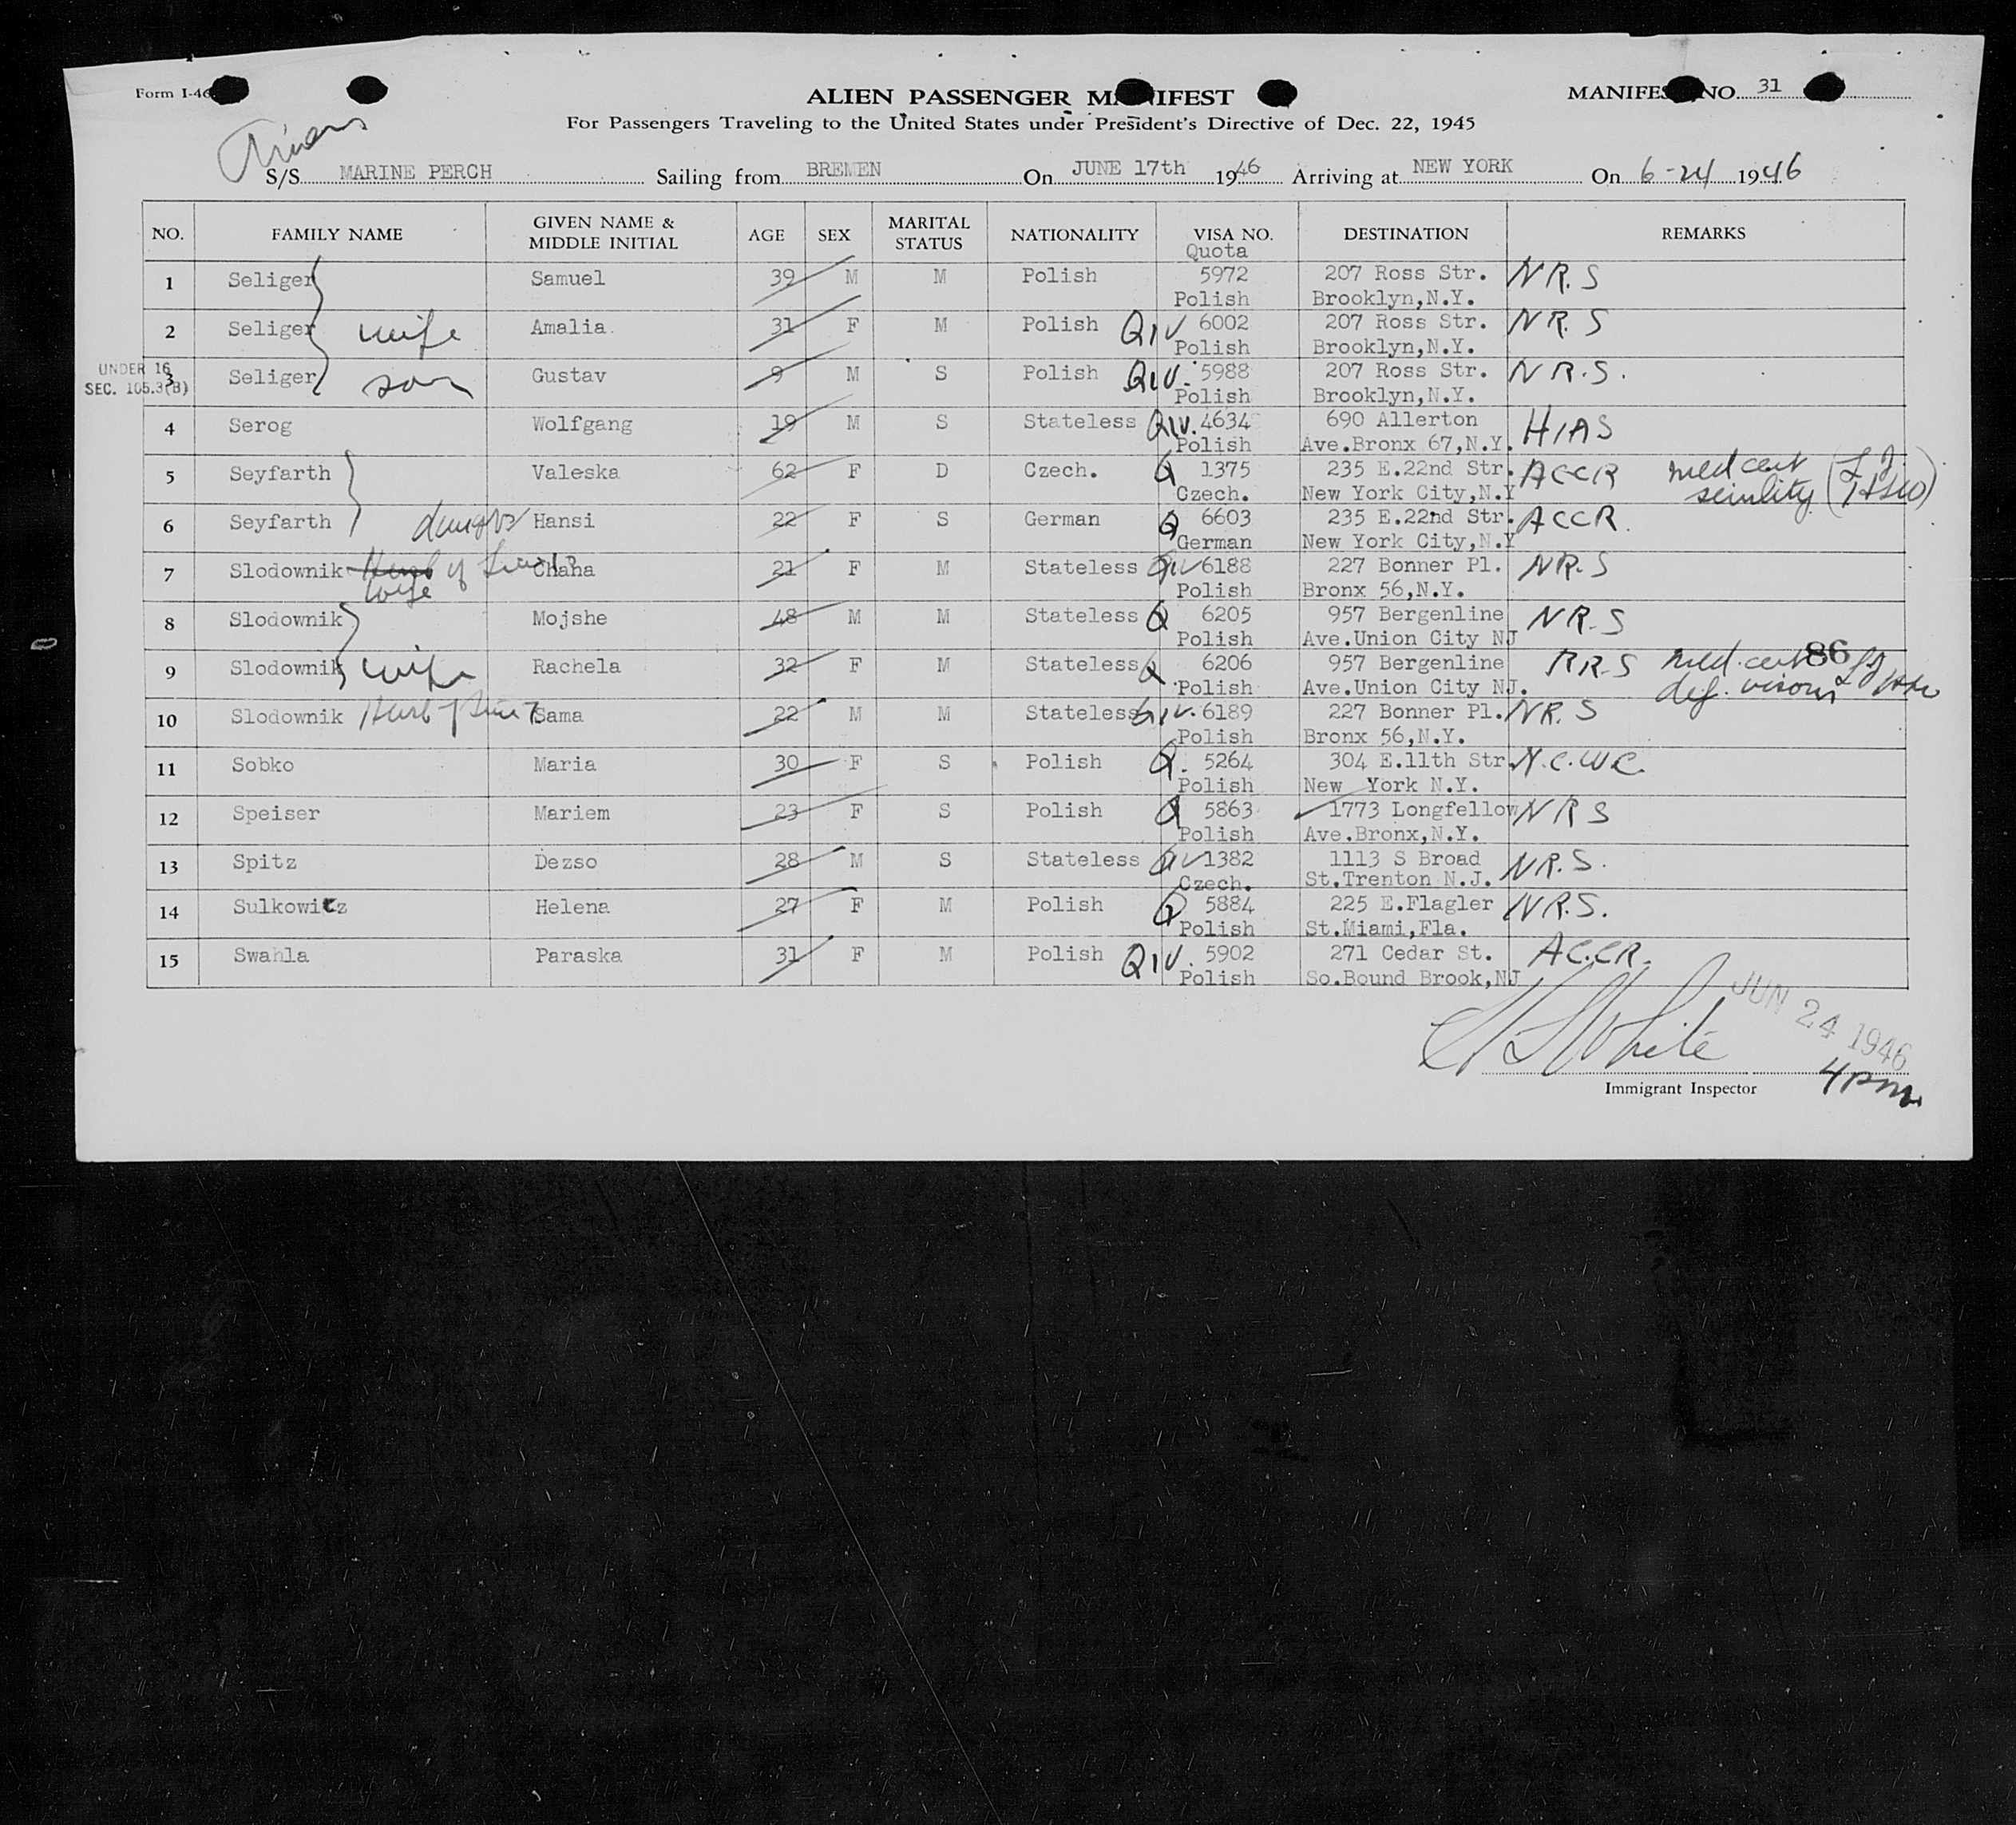 Form I-46
ALIEN PASSENGER MANIFEST
MANIFEST NO. 31
For Passengers Traveling to the United States under President's Directive of Dec. 22, 1945
S/S MARINE PERCH Sailing from BREMEN On JUNE 17th 1946 Arriving at NEW YORK On 6-24 1946
NO. FAMILY NAME GIVEN NAME & MIDDLE INITIAL AGE SEX MARITAL STATUS NATIONALITY VISA NO. DESTINATION REMARKS
Quota
1 Seliger Samuel 39 M M Polish 5972 207 Ross Str. N.R.S
Polish Brooklyn,N.Y.
2 Seliger wife Amalia 31 F M Polish QIV 6002 207 Ross Str. N.R.S
Polish Brooklyn,N.Y.
UNDER 16
SEC. 105.3(B)
3 Seliger son Gustav 9 M S Polish QIV. 5988 207 Ross Str. N.R.S.
Polish Brooklyn,N.Y.
4 Serog Wolfgang 19 M S Stateless QIV. 4634 690 Allerton HIAS
Polish Ave.Bronx 67,N.Y.
5 Seyfarth Valeska 62 F D Czech. Q 1375 235 E.22nd Str. ACCR med cert
Czech. New York City,N.Y
6 Seyfarth Hansi 22 F S German Q 6603 235 E.22nd Str. ACCR.
German New York City,N.Y
7 Slodownik of Chana 21 F M Stateless QIV 6188 227 Bonner Pl. N.R.S
wife Polish Bronx 56,N.Y.
8 Slodownik Mojshe 48 M M Stateless Q 6205 957 Bergenline N.R.S
Polish Ave.Union City NJ
9 Slodownik wife Rachela 32 F M Stateless Q 6206 957 Bergenline R.R.S med. cert 86
Polish Ave.Union City NJ. def. vision
10 Slodownik Sama 22 M M Stateless QIV. 6189 227 Bonner Pl. N.R.S
Polish Bronx 56,N.Y.
11 Sobko Maria 30 F S Polish Q. 5264 304 E.11th Str. N.C.W.C.
Polish New York N.Y.
12 Speiser Mariem 23 F S Polish Q 5863 1773 Longfellow N R S
Polish Ave.Bronx,N.Y.
13 Spitz Dezso 28 M S Stateless QIV 1382 1113 S Broad N.R.S.
Czech. St.Trenton N.J.
14 Sulkowicz Helena 27 F M Polish Q 5884 225 E.Flagler N.R.S.
Polish St.Miami,Fla.
15 Swahla Paraska 31 F M Polish QIV. 5902 271 Cedar St. A.C.C.R.
Polish So.Bound Brook,NJ
White
JUN 24 1946
Immigrant Inspector
4pm.